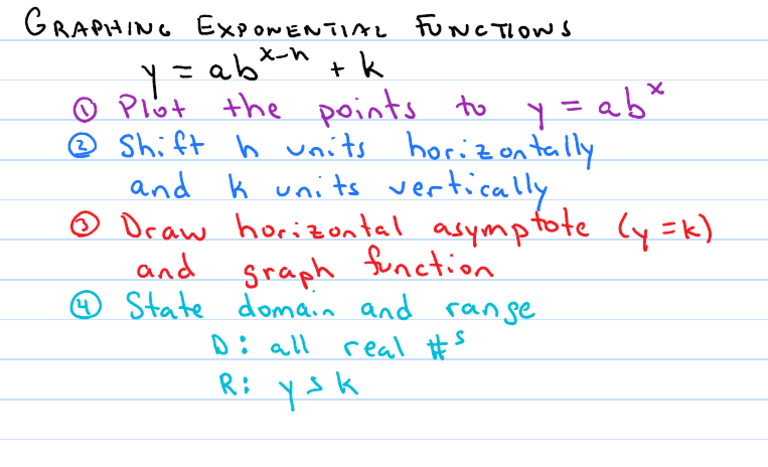 GRAPHING EXPONENTIAL FUNCTIONS
y = ab^(x-h) + k
① Plot the points to y = ab^x
② Shift h units horizontally
and k units vertically
③ Draw horizontal asymptote (y = k)
and graph function
④ State domain and range
D: all real #s
R: y > k